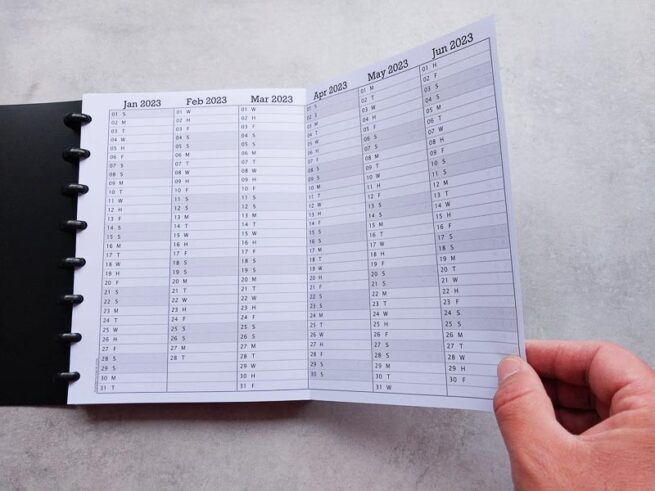 Jan 2023
01 S
02 M
03 T
04 W
05 H
06 F
07 S
08 S
09 M
10 T
11 W
12 H
13 F
14 S
15 S
16 M
17 T
18 W
19 H
20 F
21 S
22 S
23 M
24 T
25 W
26 H
27 F
28 S
29 S
30 M
31 T
Feb 2023
01 W
02 H
03 F
04 S
05 S
06 M
07 T
08 W
09 H
10 F
11 S
12 S
13 M
14 T
15 W
16 H
17 F
18 S
19 S
20 M
21 T
22 W
23 H
24 F
25 S
26 S
27 M
28 T
Mar 2023
01 W
02 H
03 F
04 S
05 S
06 M
07 T
08 W
09 H
10 F
11 S
12 S
13 M
14 T
15 W
16 H
17 F
18 S
19 S
20 M
21 T
22 W
23 H
24 F
25 S
26 S
27 M
28 T
29 W
30 H
31 F
Apr 2023
01 S
02 S
03 M
04 T
05 W
06 H
07 F
08 S
09 S
10 M
11 T
12 W
13 H
14 F
15 S
16 S
17 M
18 T
19 W
20 H
21 F
22 S
23 S
24 M
25 T
26 W
27 H
28 F
29 S
30 S
May 2023
01 M
02 T
03 W
04 H
05 F
06 S
07 S
08 M
09 T
10 W
11 H
12 F
13 S
14 S
15 M
16 T
17 W
18 H
19 F
20 S
21 S
22 M
23 T
24 W
25 H
26 F
27 S
28 S
29 M
30 T
31 W
Jun 2023
01 H
02 F
03 S
04 S
05 M
06 T
07 W
08 H
09 F
10 S
11 S
12 M
13 T
14 W
15 H
16 F
17 S
18 S
19 M
20 T
21 W
22 H
23 F
24 S
25 S
26 M
27 T
28 W
29 H
30 F